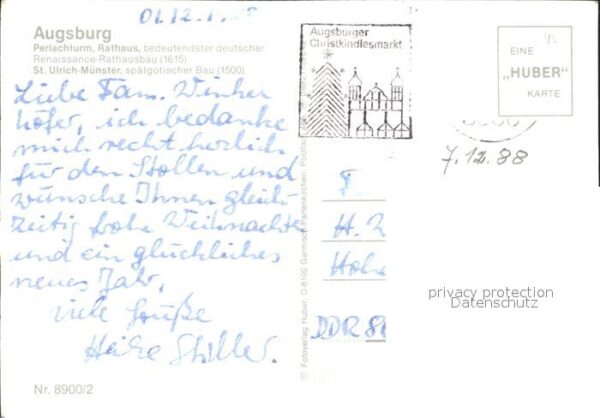 01.12.1
Augsburg
Perlachturm, Rathaus, bedeutendster deutscher
Renaissance-Rathausbau (1615)
St. Ulrich-Münster, spätgotischer Bau (1500)
Liebe Fam. Winker
höfer, ich bedanke
mich recht herzlich
für den Stollen und
wünsche Ihnen gleich
zeitig frohe Weihnachten
und ein glückliches
neues Jahr,
viele Grüße
Heike Stiller.
Nr. 8900/2
© Fotoverlag Huber, D-8100 Garmisch-Partenkirchen, Postfach
Augsburger
Christkindlesmarkt
EINE
„HUBER"
KARTE
7.12.88
F
H.
Hohe
DDR 86
privacy protection
Datenschutz